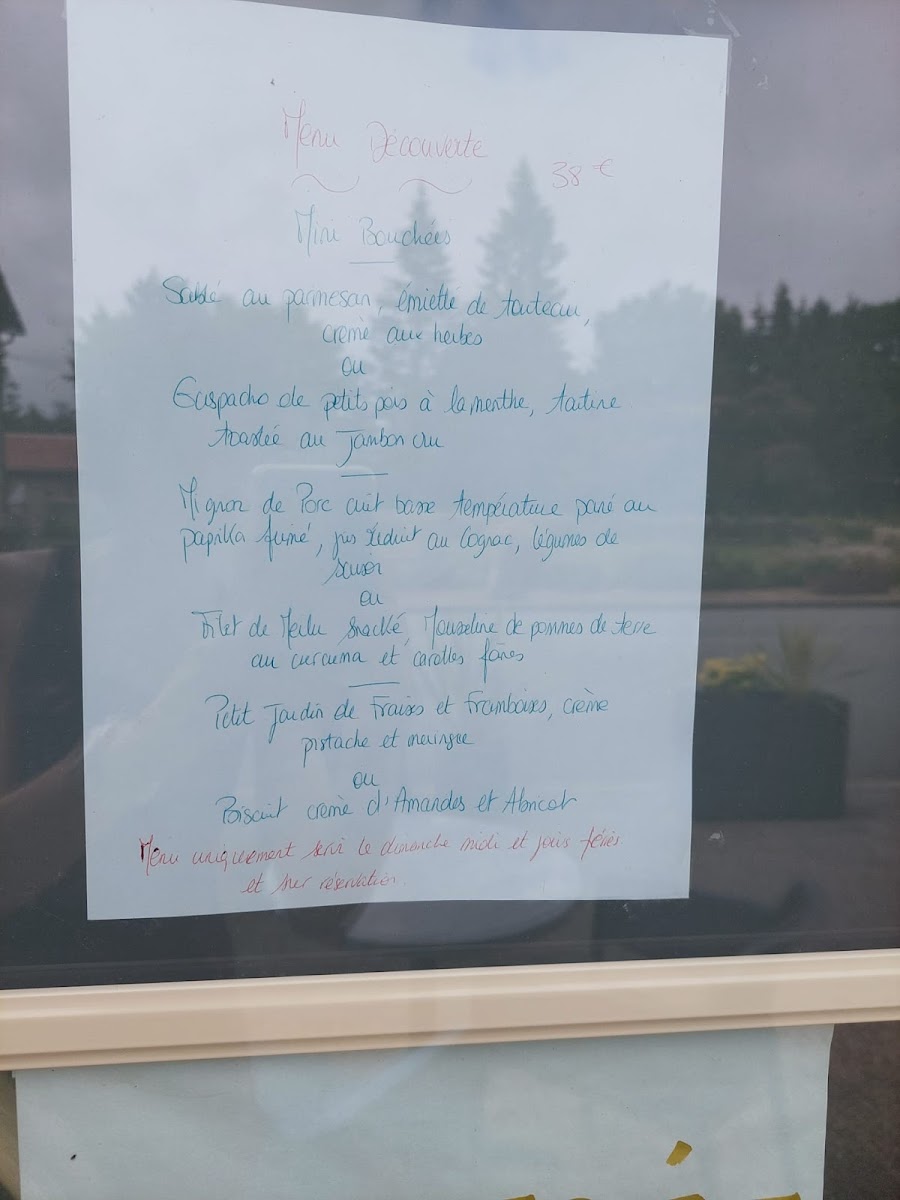 Menu Découverte
38 €
Mini Bouchées
Sablé au parmesan, émietté de tourteau,
crème aux herbes
ou
Gaspacho de petits pois à la menthe, tartine
toastée au Jambon cru
Mignon de Porc cuit basse température pané au
paprika fumé, jus réduit au Cognac, légumes de
saison
ou
Filet de Merlu snacké, Mousseline de pommes de terre
au curcuma et carottes fânes
Petit Jardin de Fraises et Framboises, crème
pistache et meringue
ou
Biscuit crème d'Amandes et Abricot
Menu uniquement servi le dimanche midi et jours fériés
et sur réservation.